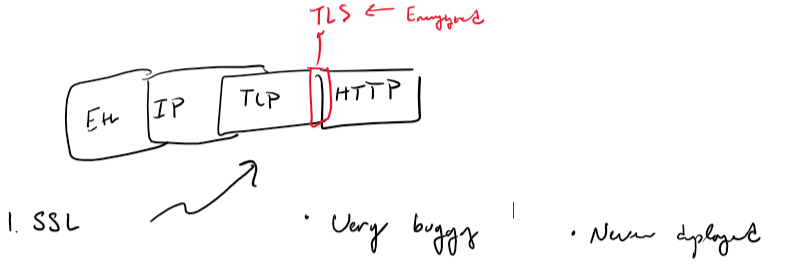 TLS ← Encrypted
Eth IP TCP HTTP
1. SSL • Very buggy • Never deployed